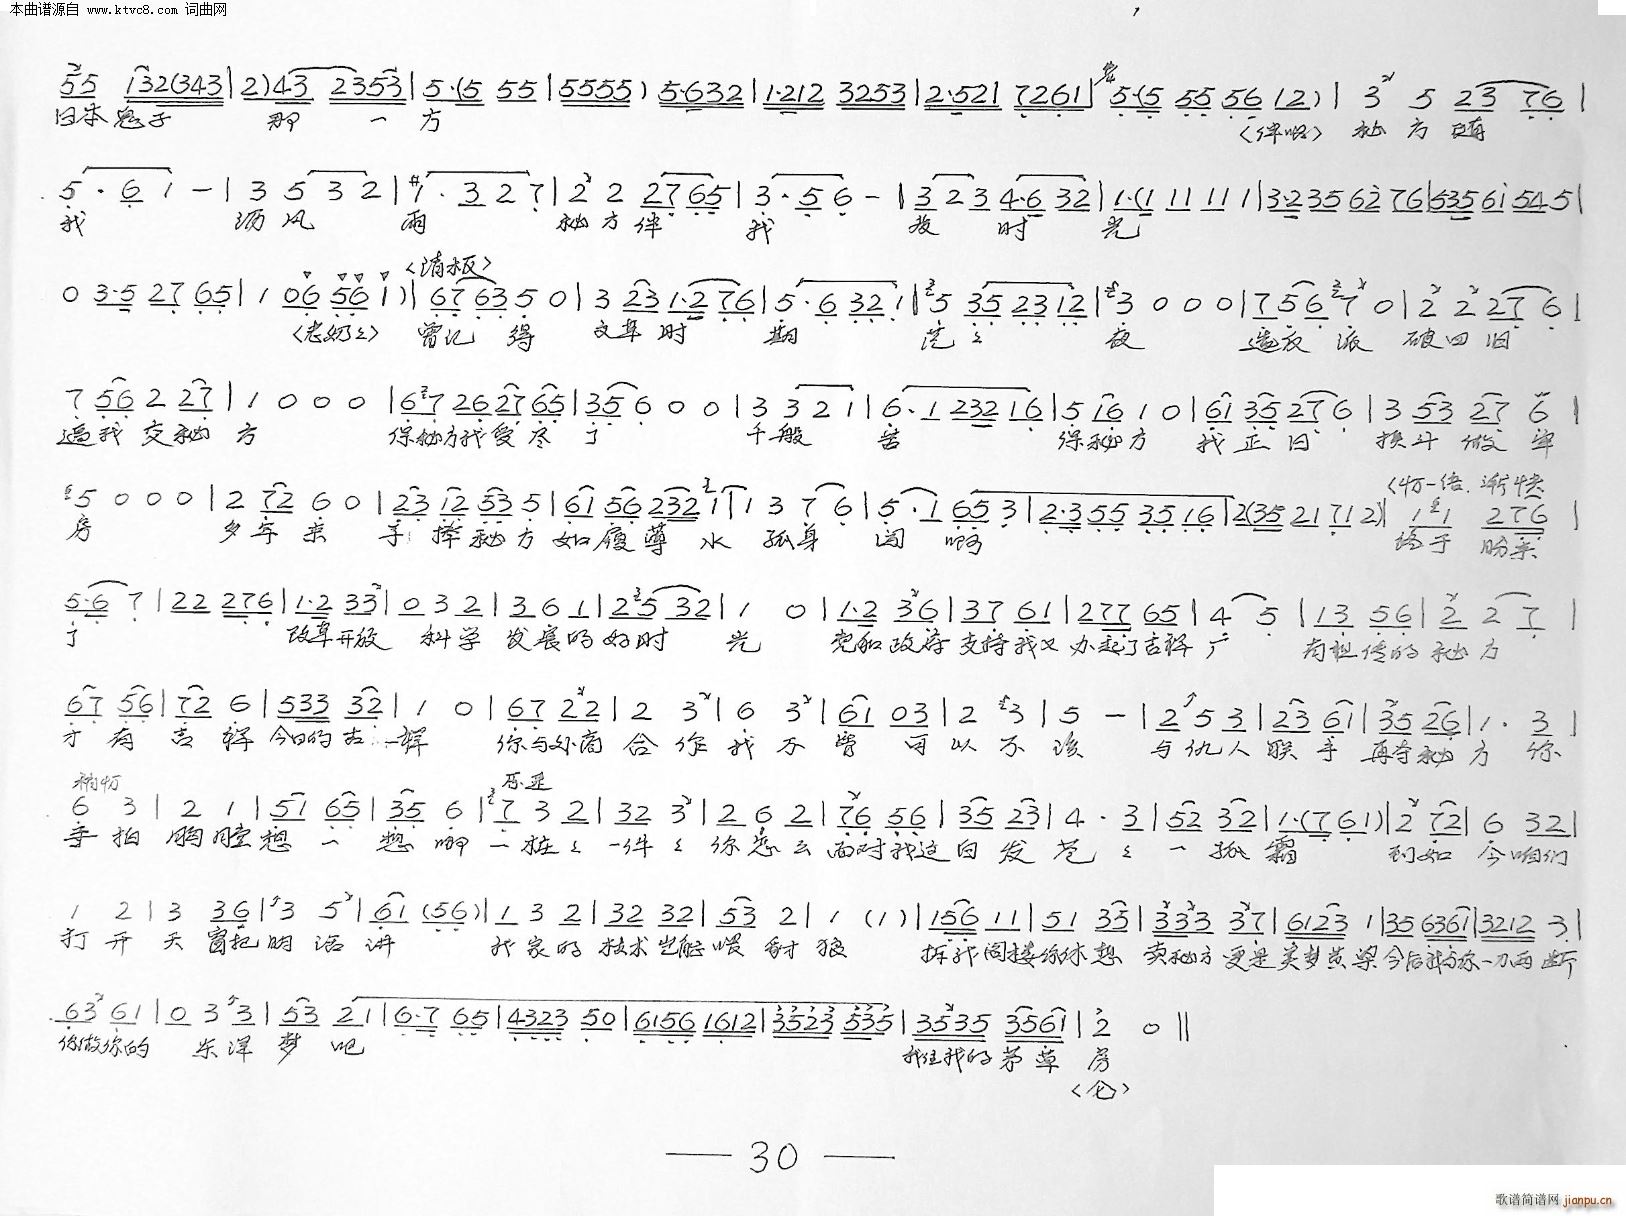 本曲谱源自 www.ktvc8.com 词曲网
5 5 1 3 2 (3 4 3 | 2) 4 3 2 3 5 3 | 5·(5 5 5 | 5 5 5 5) 5·6 3 2 | 1·2 1 2 3 2 5 3 | 2·5 2 1 7 2 6 1 | 5·(5 5 5 5 6 1 2) | 3 5 2 3 7 6 |
日本鬼子 那 一 方 〈伴唱〉 秘 方 随
5 · 6 1 - | 3 5 3 2 | 1 · 3 2 7 | 2 2 2 7 6 5 | 3 · 5 6 - | 3 2 3 4·6 3 2 | 1·(1 1 1 1 1 1 | 3·2 3 5 6 2 7 6 | 5 3 5 6 1 5 4 5 |
我 沥 风 雨 秘 方 伴 我 度 时 光
〈清板〉
0 3·5 2 7 6 5 | 1 0 6 5 6 1) | 6 7 6 3 5 0 | 3 2 3 1·2 7 6 | 5 · 6 3 2 1 | 5 3 5 2 3 1 2 | 3 0 0 0 | 7 5 6 7 0 | 2 2 2 7 6 |
〈老奶奶〉 曾记 得 文革 时 期 夜 造反 派 破四旧
7 5 6 2 2 7 | 1 0 0 0 | 6 7 2 6 2 7 6 5 | 3 5 6 0 0 | 3 3 2 1 | 6·1 2 3 2 1 6 | 5 1 6 1 0 | 6 1 3 5 2 7 6 | 3 5 3 2 7 6 |
逼我 交秘 方 保秘方我受 尽 了 千般 苦 保秘方 我 正 日 挨斗 做 牢
5 0 0 0 | 2 7 2 6 0 | 2 3 1 2 5 3 5 | 6 1 5 6 2 3 2 1 | 1 3 7 6 | 5 · 1 6 5 3 | 2·3 5 5 3 5 1 6 | 2 (3 5 2 1 7 1 2) | 1 1 2 7 6 |
房 多年 来 手 捧 秘 方 如履薄 冰 孤身 闯 啊 终于 盼来
5·6 7 | 2 2 2 7 6 | 1·2 3 3 | 0 3 2 | 3 6 1 | 2 5 3 2 | 1 0 | 1·2 3 6 | 3 7 6 1 | 2 7 7 6 5 | 4 5 | 1 3 5 6 | 2 2 7 |
了 改革开放 科学 发展的好时 光 党和政府 支持我又 办起了吉祥 厂 有祖传的 秘 方
6 7 5 6 | 7 2 6 | 5 3 3 3 2 | 1 0 | 6 7 2 2 | 2 3 | 6 3 | 6 1 0 3 | 2 3 | 5 - | 2 5 3 | 2 3 6 1 | 3 5 2 6 | 1 · 3 |
才 有 吉 祥 今日的 吉 祥 你与外商 合 作 我 不 管 可 以 不 该 与仇人 联 手 再夺秘 方 你
6 3 | 2 1 | 5 1 6 5 | 3 5 6 | 7 3 2 | 3 2 3 | 2 6 2 | 7 6 5 6 | 3 5 2 3 | 4 · 3 | 5 2 3 2 | 1·(7 6 1) | 2 7 2 | 6 3 2 |
手 拍 胸膛想 一 想 哪 一桩 一件 你怎么 面对我这白 发 苍 一 孤 霜 到如 今咱们
1 2 | 3 3 6 | 3 5 | 6 1 (5 6) | 1 3 2 | 3 2 3 2 | 5 3 2 | 1 (1) | 1 5 6 1 1 | 5 1 3 5 | 3 3 3 3 7 | 6 1 2 3 1 | 3 5 6 3 6 1 | 3 2 1 2 3 |
打 开 天 窗把 明 话 讲 我 家 的 技术 岂能 喂 豺 狼 拆我阁楼你休想 卖秘方 更是美梦黄 梁 今后我与你一刀两断
6 3 6 1 | 0 3 3 | 5 3 2 1 | 6·7 6 5 | 4 3 2 3 5 0 | 6 1 5 6 1 6 1 2 | 3 5 2 3 5 3 5 | 3 5 3 5 3 5 6 1 | 2 0 ||
你做你的 东 洋 梦 吧 我住我的 茅 草 房
〈仓〉
— 30 —
歌谱简谱网 jianpu.cn